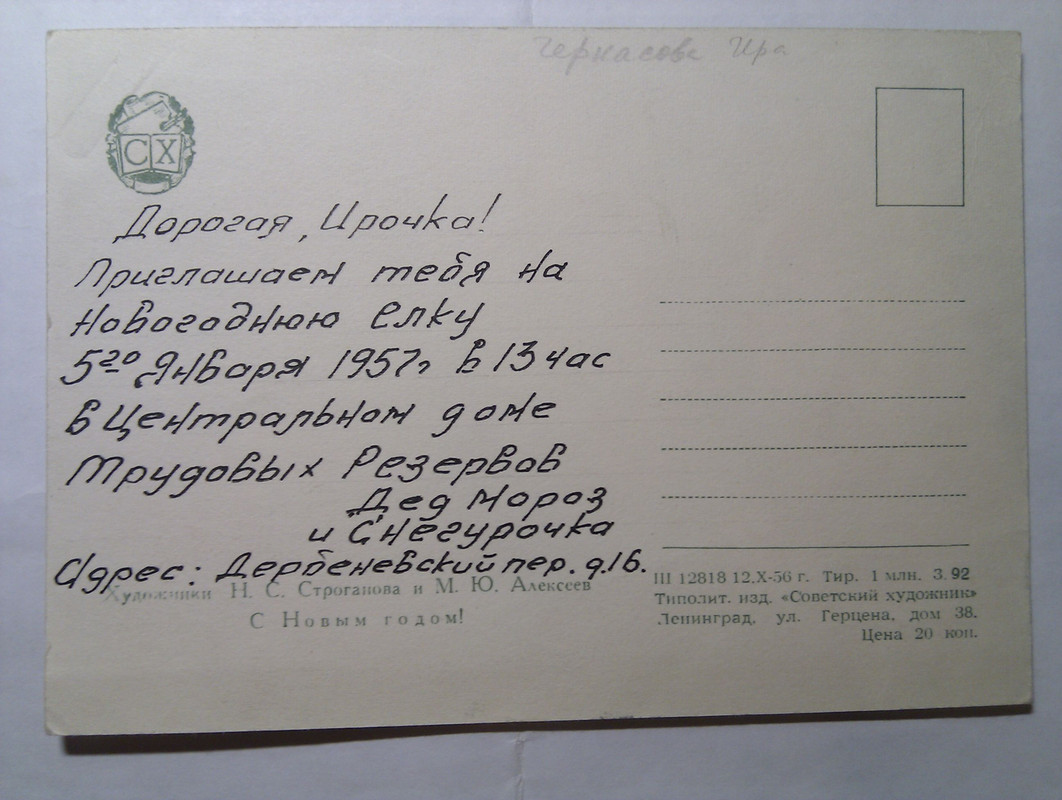 Черкасова Ира
СХ
Дорогая, Ирочка!
Приглашаем тебя на
Новогоднюю Елку
5го Января 1957г в 13 час
в Центральном доме
Трудовых Резервов
Дед Мороз
и Снегурочка
Адрес: Дербеневский пер. д.16.
Художники Н. С. Строганова и М. Ю. Алексеев
С Новым годом!
Ш 12818 12.X-56 г. Тир. 1 млн. З. 92
Типолит. изд. «Советский художник»
Ленинград, ул. Герцена, дом 38.
Цена 20 коп.